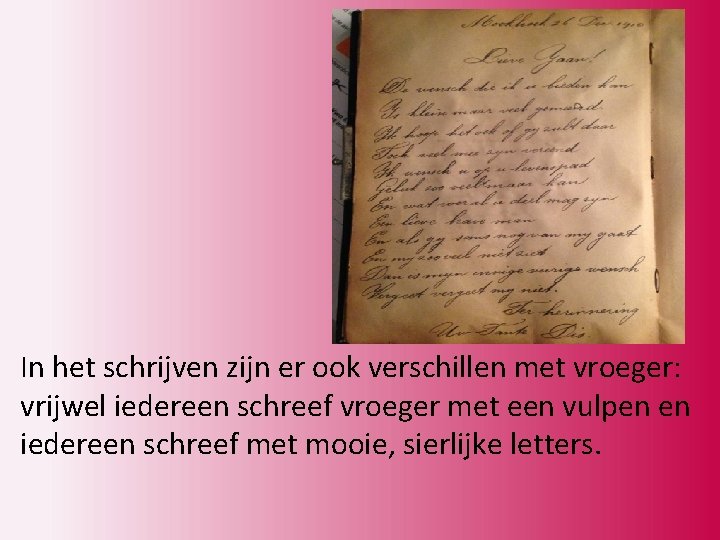 Moerkhoek 26 Dec 1910
Lieve Jaan!
De wensch die ik u bieden kan
Is klein maar veel gemeend
Ik hoop het ook of gy zult daar
Toch veel mee zyn vereend
Ik wensch u op u levenspad
Geluk zoo veel maar kan
En wat voor al u deel mag zyn
Een lieve have man
En als gy soms nog van my gaat
En my zoo veel niet ziet
Dan is myn innige vurige wensch
Vergeet vergeet my niet.
Ter herinnering
Uw Tante Dis.
In het schrijven zijn er ook verschillen met vroeger:
vrijwel iedereen schreef vroeger met een vulpen en
iedereen schreef met mooie, sierlijke letters.